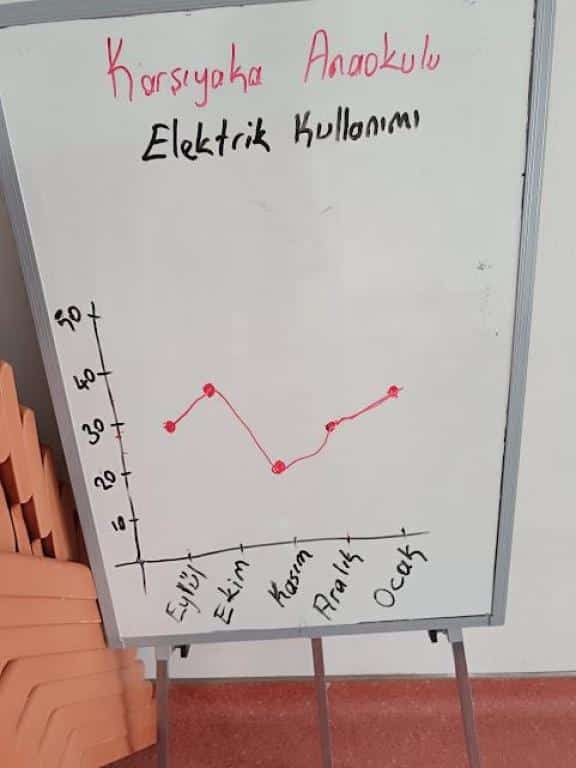 Karşıyaka Anaokulu
Elektrik Kullanımı
50
40
30
20
10
Eylül
Ekim
Kasım
Aralık
Ocak